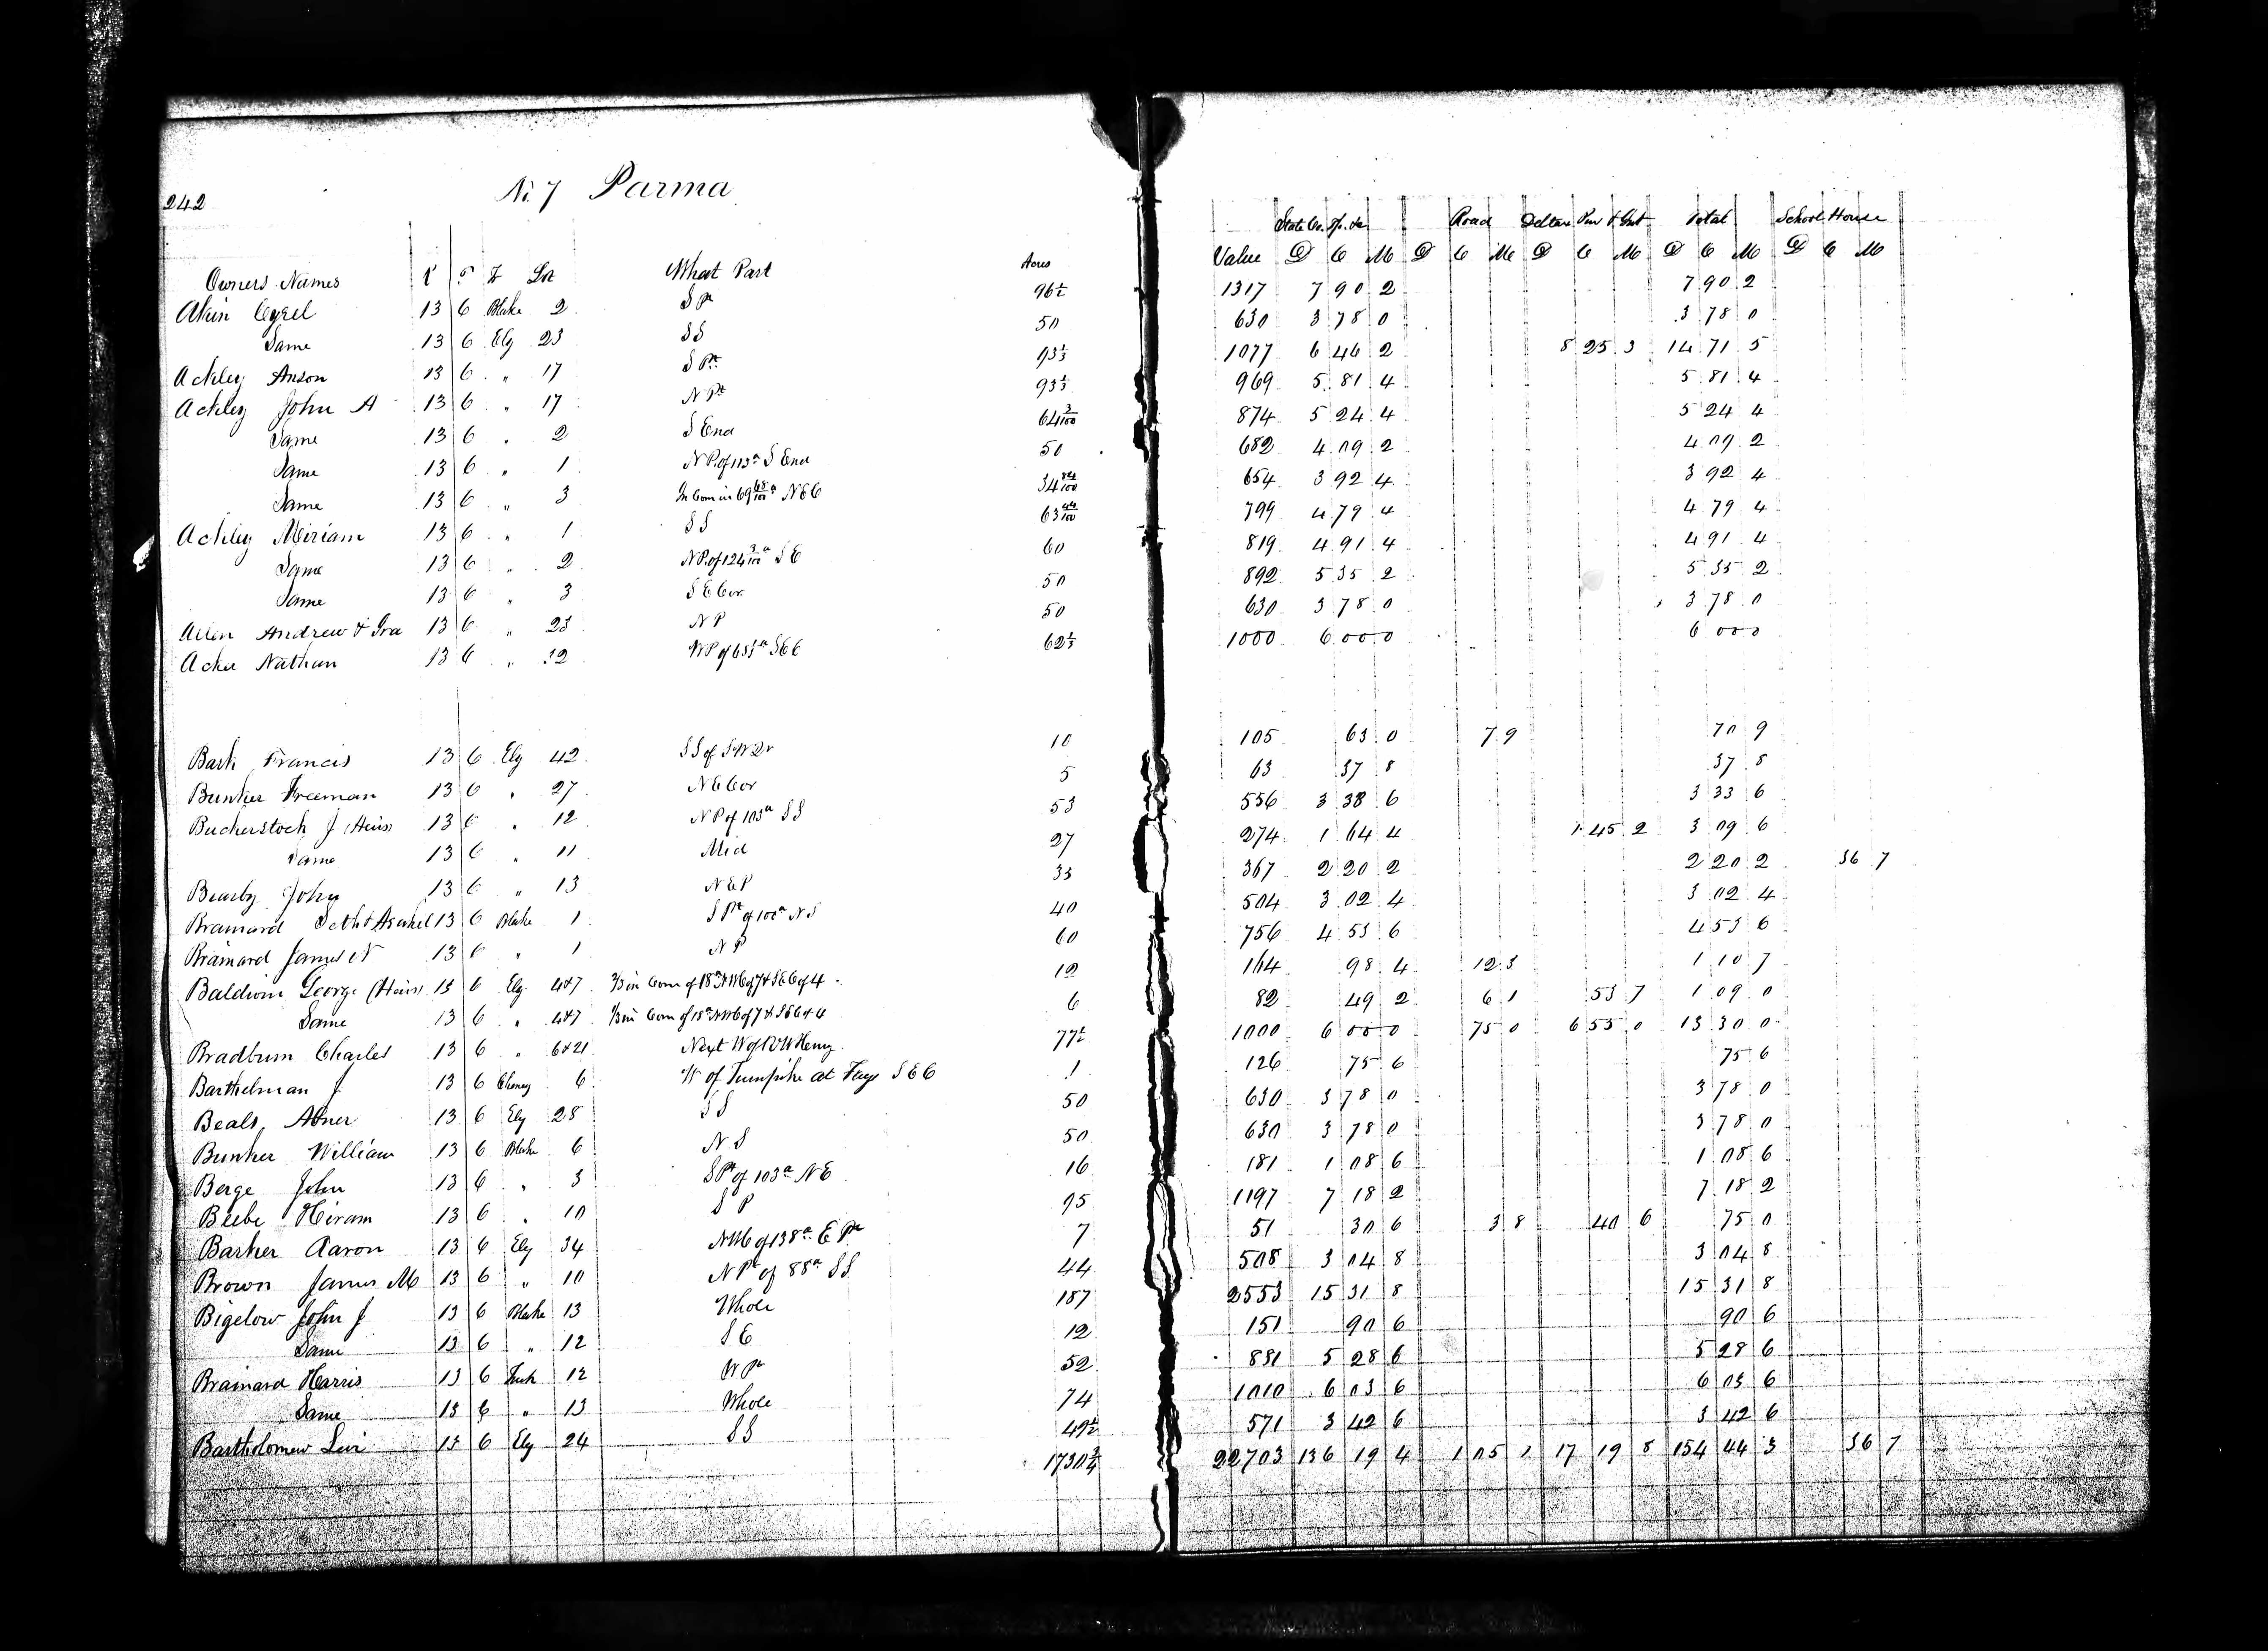 242 No. 7 Parma
State Co. Sp. &c Road Delta Total School House
Owners Names R T Lot What Part Acres Value D C M D C M D C M D C M D C M
Akin 13 6 Blake 2 S Pt 96½ 1317 7 90 2 7 90 2
Same 13 6 Ely 23 SS 50 630 3 78 0 3 78 0
Ackley Anson 13 6 " 17 S Pt 93⅓ 1077 6 46 2 8 25 3 14 71 5
Ackley John A 13 6 " 17 N Pt 93⅓ 969 5 81 4 5 81 4
Same 13 6 " 2 S End 64 3/100 874 5 24 4 5 24 4
Same 13 6 " 1 N P. of 113a S End 50 682 4 09 2 4 09 2
Same 13 6 " 3 In Com in 69 68/100 a NEC 34 84/100 654 3 92 4 3 92 4
Ackley Miriam 13 6 " 1 SS 63 44/100 799 4 79 4 4 79 4
Same 13 6 " 2 N P. of 124 3/100 a S E 60 819 4 91 4 4 91 4
Same 13 6 " 3 S E Cor 50 892 5 35 2 5 35 2
Allen Andrew & Ira 13 6 " 23 N P 50 630 3 78 0 3 78 0
Acker Nathan 13 6 " 12 62½ 1000 6 00 0 6 00 0
Bark Francis 13 6 Ely 42 SS of S W Qr 10 105 63 0 7 9 70 9
Bunker Freeman 13 6 " 27 N E Cor 5 63 37 8 37 8
Buckerstock J (Heirs) 13 6 " 12 N P of 103a SS 53 556 3 38 6 3 33 6
Same 13 6 " 11 Mid 27 274 1 64 4 1 45 2 3 09 6
Bearby John 13 6 " 13 N E P 33 367 2 20 2 2 20 2 36 7
Brainard Seth & Asahel 13 6 Blake 1 S Pt of 100a N S 40 504 3 02 4 3 02 4
Brainard James N 13 6 " 1 N P 60 756 4 53 6 4 53 6
Baldwin George (Heirs) 13 6 Ely 4&7 ⅔ in Com of 18a NWC of 7 & SEC of 4 12 164 98 4 12 3 1 10 7
Same 13 6 " 4&7 ⅓ in Com of 18a NWC of 7 & SEC of 4 6 82 49 2 6 1 53 7 1 09 0
Bradburn Charles 13 6 " 6&21 Next W of R W Henry 77½ 1000 6 00 0 75 0 6 55 0 13 30 0
Barthelman J 13 6 Cheney 6 W of Turnpike at Fays S E C 1 126 75 6 75 6
Beals Abner 13 6 Ely 28 SS 50 630 3 78 0 3 78 0
Bunker William 13 6 Blake 6 N S 50 630 3 78 0 3 78 0
Berge John 13 6 " 3 S Pt of 103a N E 16 181 1 08 6 1 08 6
Beebe Hiram 13 6 " 10 S P 95 1197 7 18 2 7 18 2
Barker Aaron 13 6 Ely 34 NWC of 138a E Pt 7 51 30 6 3 8 40 6 75 0
Brown James M 13 6 " 10 N Pt of 88a SS 44 508 3 04 8 3 04 8
Bigelow John J 13 6 Blake 13 Whole 187 2553 15 31 8 15 31 8
Same 13 6 " 12 S E 12 151 90 6 90 6
Brainard Harris 13 6 Tuck 12 W Pt 52 881 5 28 6 5 28 6
Same 13 6 " 13 Whole 74 1010 6 03 6 6 03 6
Bartholomew Levi 13 6 Ely 24 SS 49½ 571 3 42 6 3 42 6
1730¾ 22703 136 19 4 1 05 1 17 19 8 154 44 3 36 7